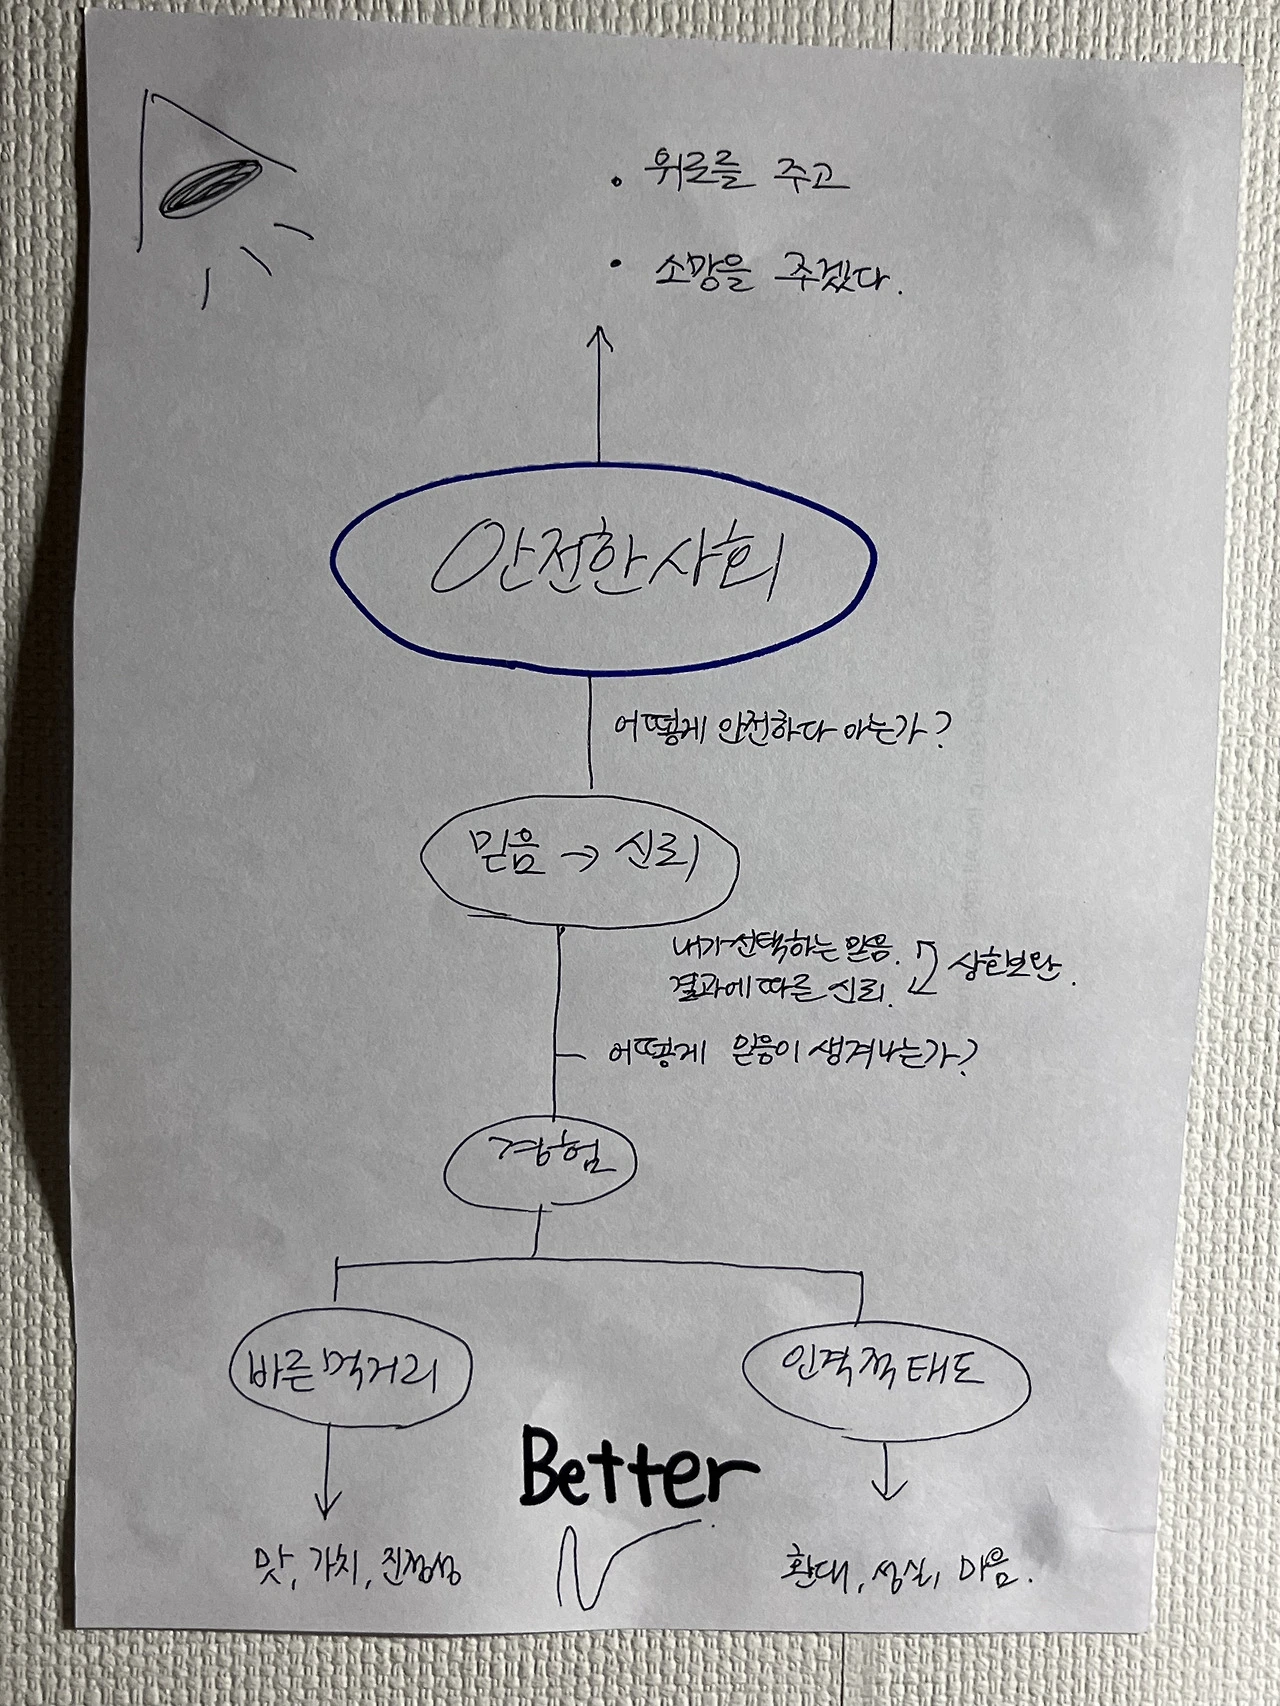 · 위로를 주고
· 소망을 주겠다.
안전한 사회
어떻게 안전하다 아는가?
믿음 → 신뢰
내가 선택하는 믿음.
결과에 따른 신뢰.
상호보완.
어떻게 믿음이 생겨나는가?
경험
바른 먹거리
인격적 태도
Better
맛, 가치, 진정성
환대, 성실, 마음.